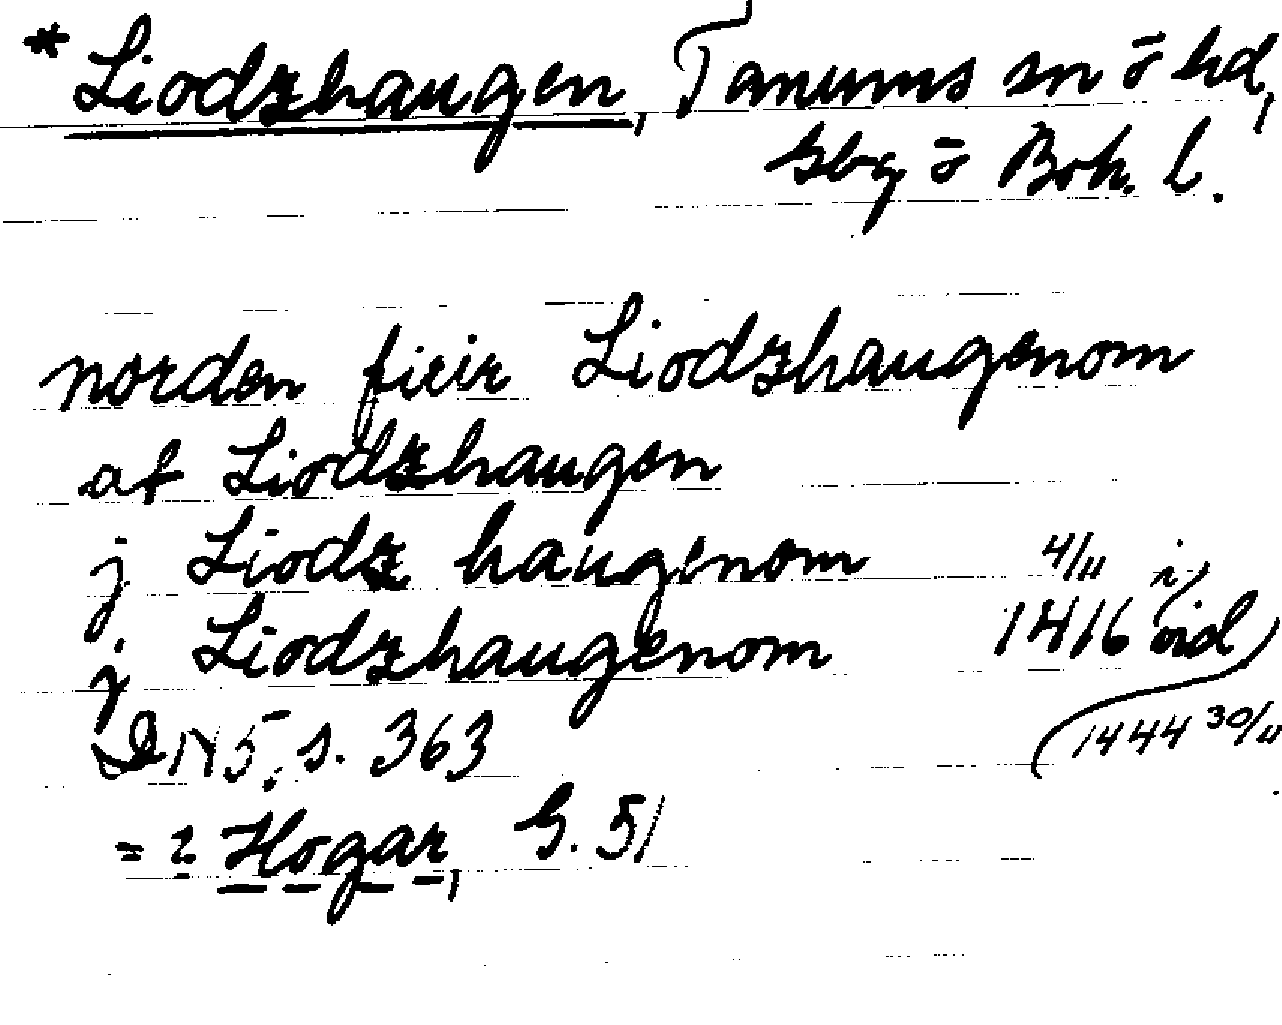 *Liodzhaugen, Tanums sn ō hd,
Gbg ō Boh. l.
norden firir Liodzhaugenom
af Liodzhaugen
j Liodz haugenom 4/11 i
j Liodzhaugenom 1416 vid
DN 5, s. 363 (1444 30/11
= ? Hogar, G. 51